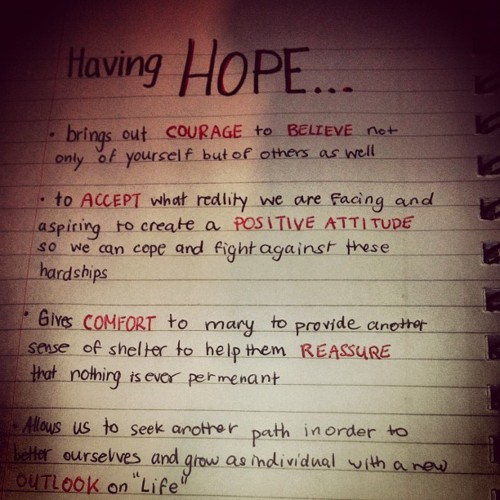 Having HOPE...
• brings out COURAGE to BELIEVE not
only of yourself but of others as well
• to ACCEPT what reality we are facing and
aspiring to create a POSITIVE ATTITUDE
so we can cope and fight against these
hardships
• Gives COMFORT to many to provide another
sense of shelter to help them REASSURE
that nothing is ever permenant
• Allows us to seek another path in order to
better ourselves and grow as individual with a new
OUTLOOK on "Life"